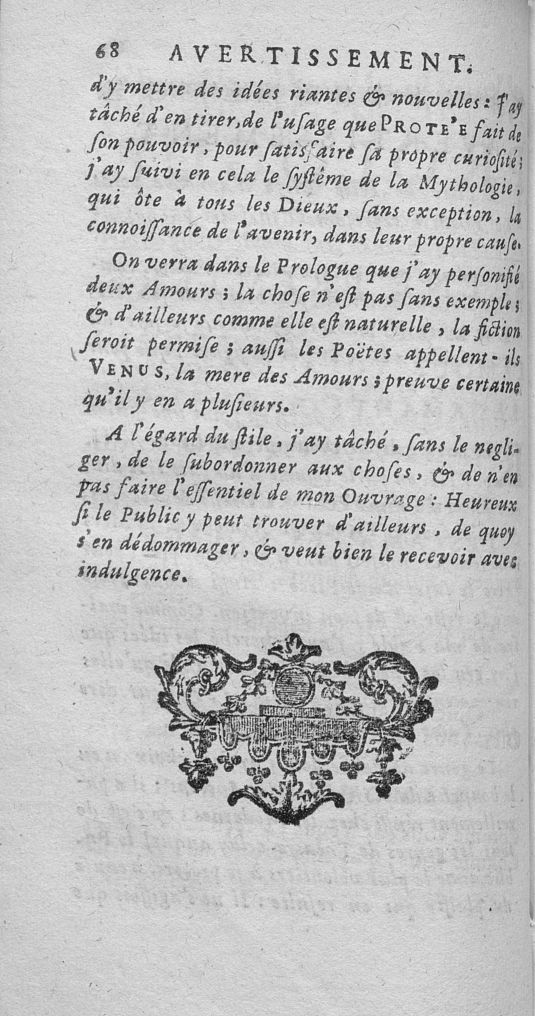 68 AVERTISSEMENT.
d'y mettre des idées riantes & nouvelles : J'ay
tâché d'en tirer, de l'uſage que PROTE'E fait de
ſon pouvoir, pour ſatisfaire ſa propre curioſité ;
j'ay ſuivi en cela le ſyſtême de la Mythologie,
qui ôte à tous les Dieux, ſans exception, la
connoiſſance de l'avenir, dans leur propre cauſe.
On verra dans le Prologue que j'ay perſonifié
deux Amours ; la choſe n'eſt pas ſans exemple ;
& d'ailleurs comme elle eſt naturelle, la fiction
ſeroit permiſe ; auſſi les Poëtes appellent-ils
VENUS, la mere des Amours ; preuve certaine
qu'il y en a pluſieurs.
A l'égard du ſtile, j'ay tâché, ſans le negli-
ger, de le ſubordonner aux choſes, & de n'en
pas faire l'eſſentiel de mon Ouvrage : Heureux
ſi le Public y peut trouver d'ailleurs, de quoy
s'en dédommager, & veut bien le recevoir avec
indulgence.